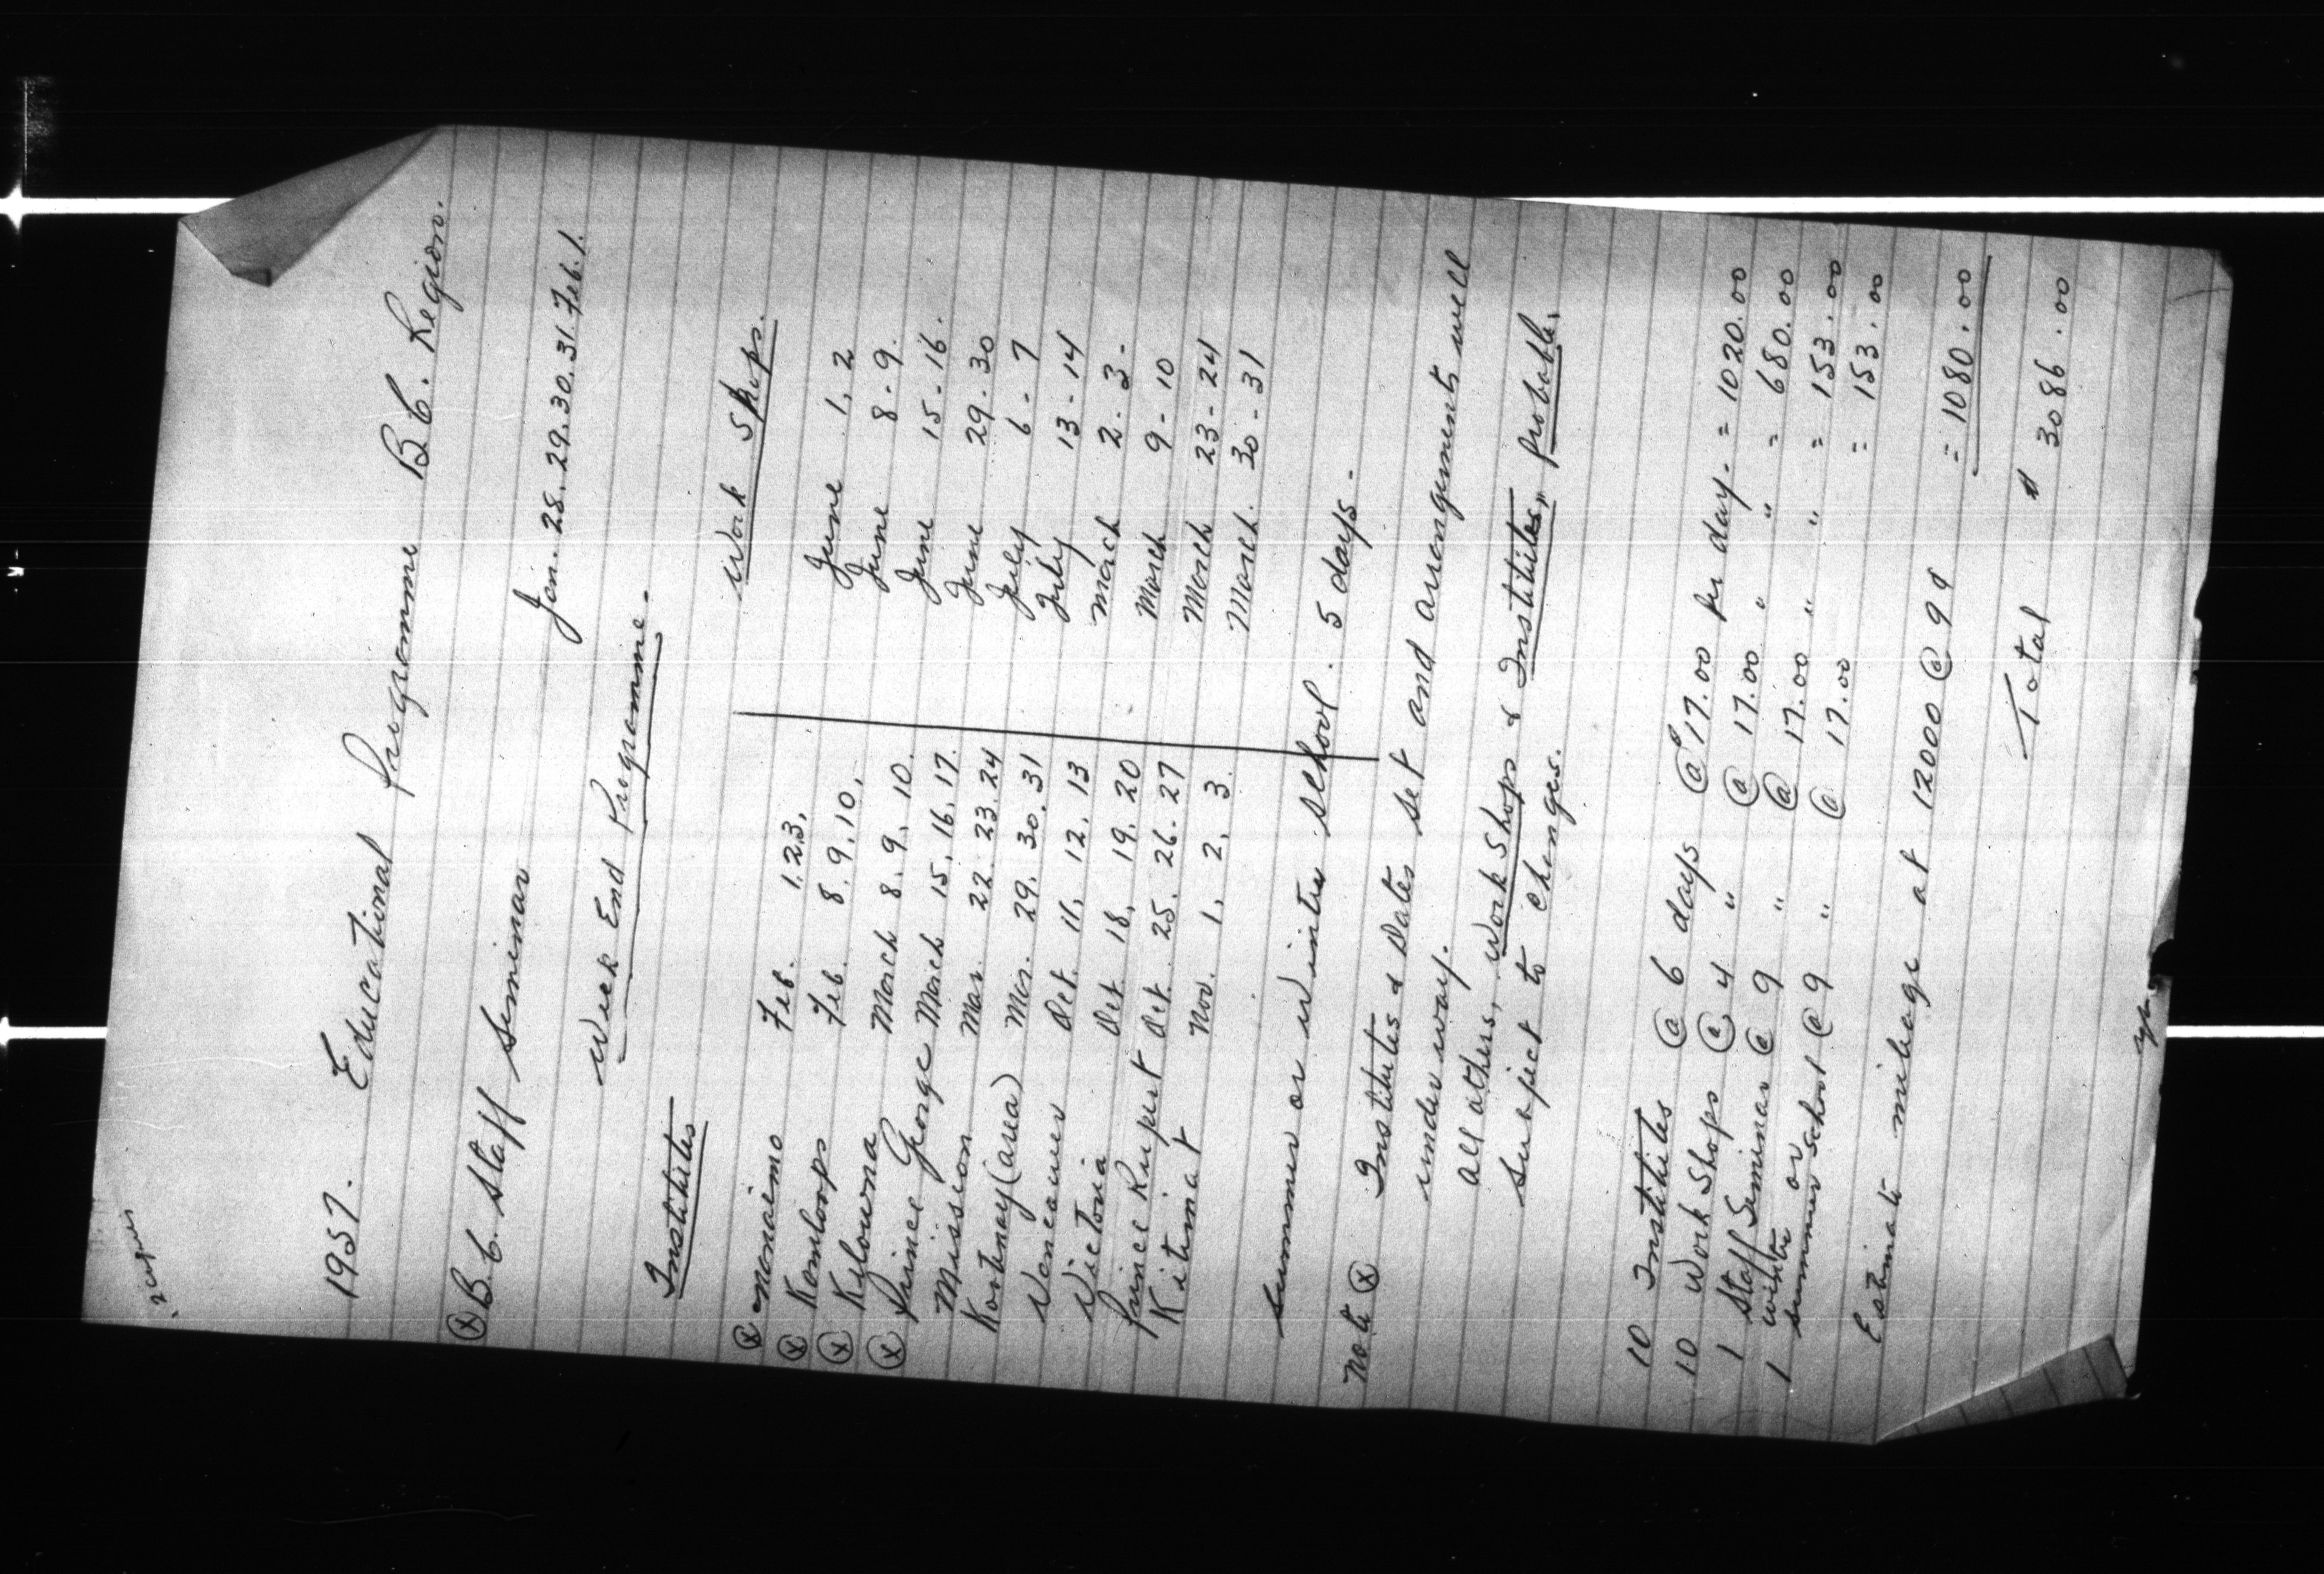 2 copies
1957. Educational Programme B.C. Region.
(x) B.C. Staff Seminar Jan. 28. 29. 30. 31. Feb. 1.
Week End Programme.
Institutes Work Shops.
(x) Nanaimo Feb. 1. 2 3, June 1, 2
(x) Kamloops Feb. 8. 9. 10, June 8 - 9.
(x) Kelowna March 8, 9, 10. June 15 - 16.
(x) Prince George March 15, 16, 17. June 29 - 30
Mission Mar. 22. 23. 24 July 6 - 7
Kortnay (area) Mar. 29, 30. 31 July 13 - 14
Vancouver Oct. 11, 12, 13 March 2. 3 -
Victoria Oct. 18, 19. 20 March 9 - 10
Prince Rupert Oct. 25. 26. 27 March 23 - 24
Kitimat Nov. 1, 2, 3. March. 30 - 31
Summer or Winter School. 5 days -
Note (x) Institutes & Dates set and arrangements well
under way.
All others, Work Shops & Institutes, probable,
Subject to changes.
10 Institutes @ 6 days @ 17.00 per day. = 1020.00
10 Work Shops @ 4 " @ 17.00 " " = 680.00
1 Staff Seminar @ 9 " @ 17.00 " " = 153.00
1 winter or summer school @ 9 " @ 17.00 = 153.00
Estimate mileage at 12000 @ 9¢ = 1080.00
Total $ 3086.00